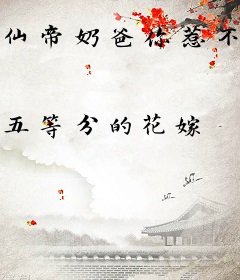 仙帝奶爸你惹不
五等分的花嫁